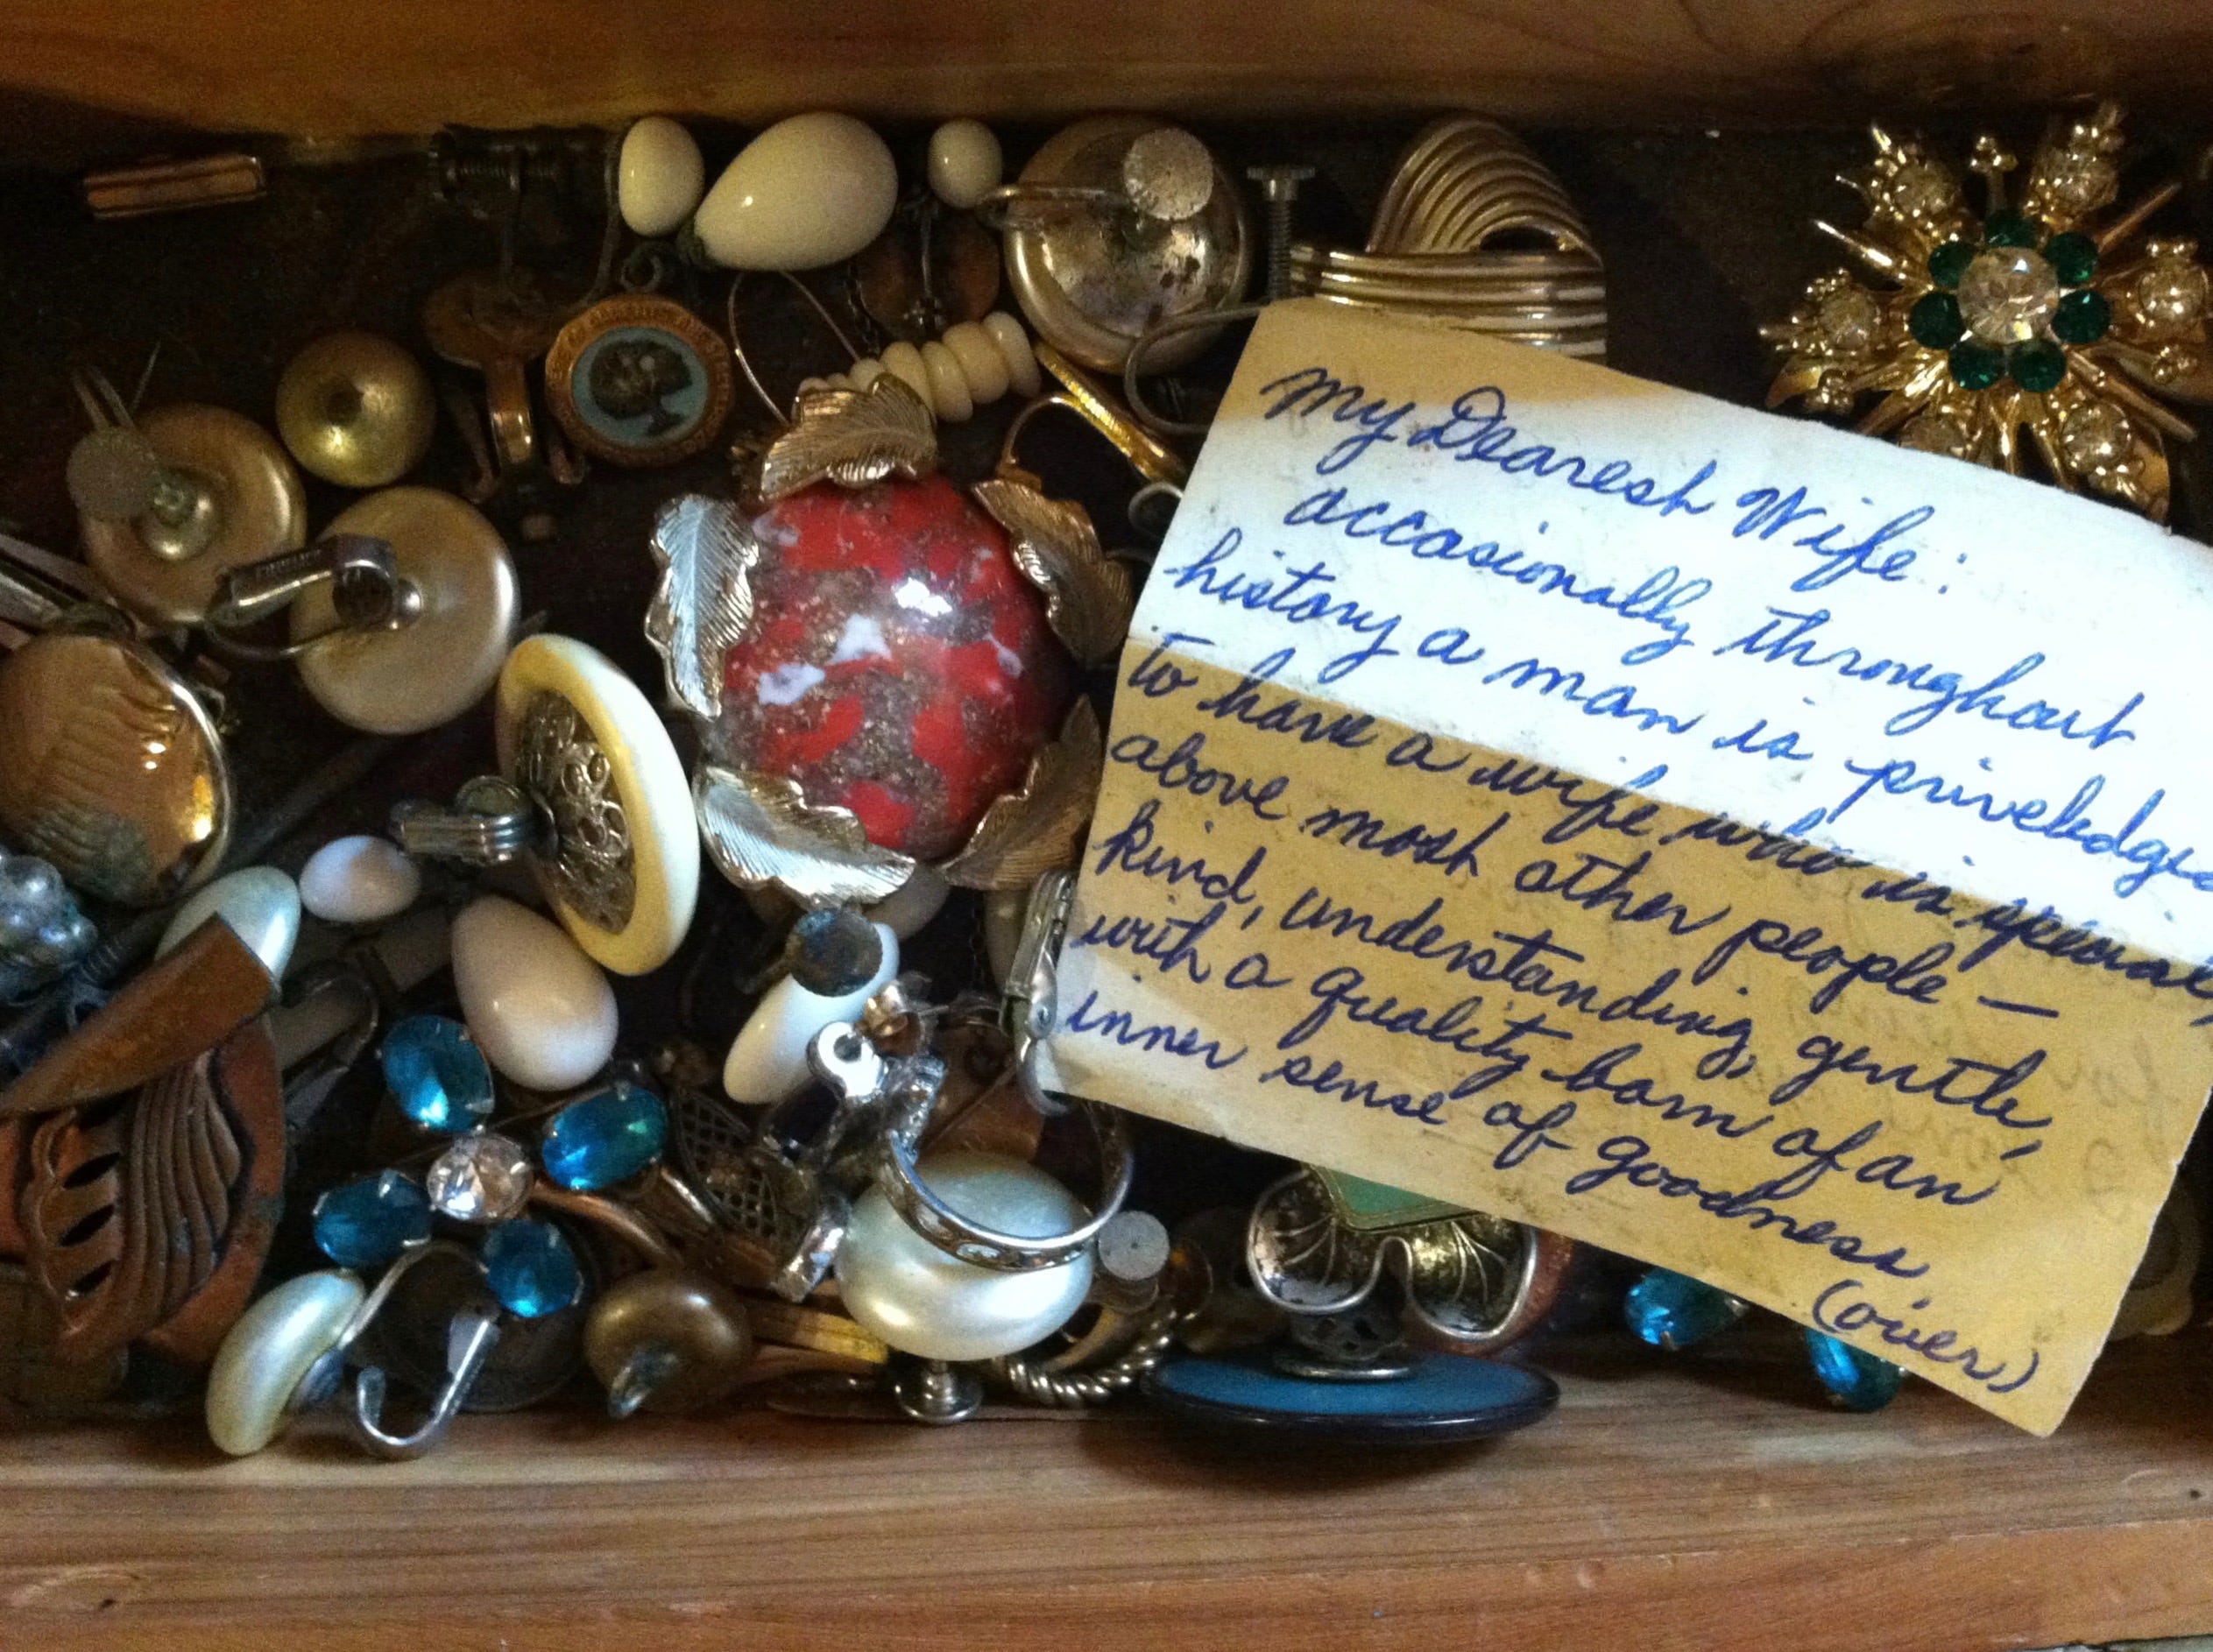 My Dearest Wife:
accasionally throughout
history a man is priveledge
to have a wife who is special,
above most other people —
kind, understanding, gentle,
with a quality born of an
inner sense of goodness.
(over)